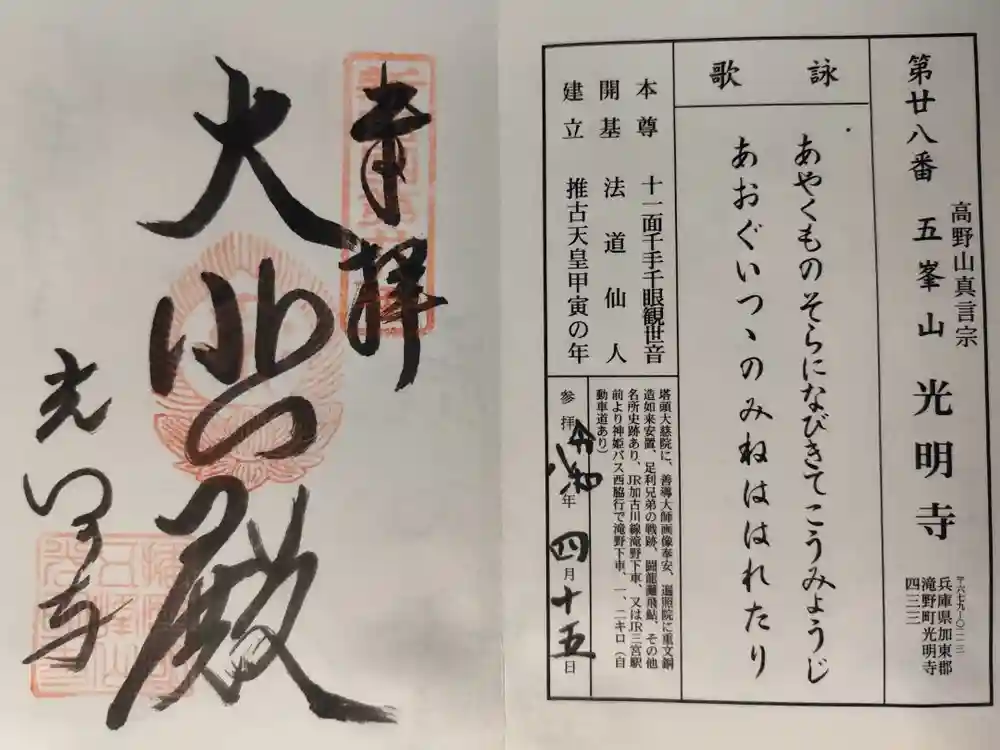 第廿八番 五峯山 光明寺
高野山真言宗
兵庫県加東郡
滝野町光明寺
四三三
詠歌
あやくものそらになびきてこうみょうじ
あおぐいつゝのみねははれたり
本尊 十一面千手千眼観世音
開基 法道仙人
建立 推古天皇甲寅の年
塔頭大慈院に、善導大師画像奉安、遍照院に重文銅
造如来安置、足利兄弟の戦跡、闘龍灘飛鮎、その他
名所史跡あり、JR加古川線滝野下車、又はJR三宮駅
前より神姫バス西脇行で滝野下車、一、二キロ(自
動車道あり)
参拝 令和 年 四月十五日
奉拝
大悲殿
光明寺